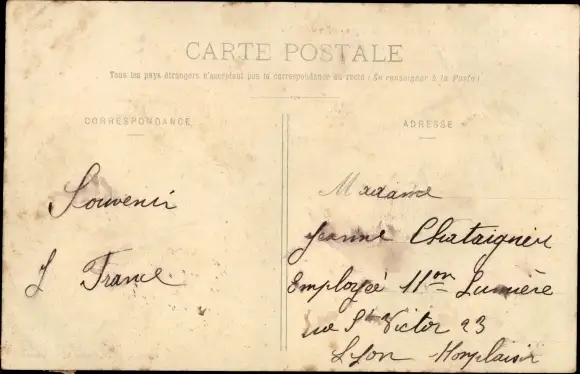 CARTE POSTALE
Tous les pays étrangers n'acceptent pas la correspondance au recto (Se renseigner à la Poste)
CORRESPONDANCE
ADRESSE
Souvenir
J France
Madame
Jeanne Chataignier
Employée Mon Lumière
rue St Victor 23
Lyon Monplaisir